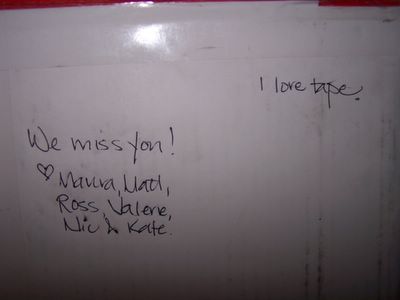 I love tape.
We miss you!
♡ Maura, Matt,
Ross, Valerie,
Nic & Kate.